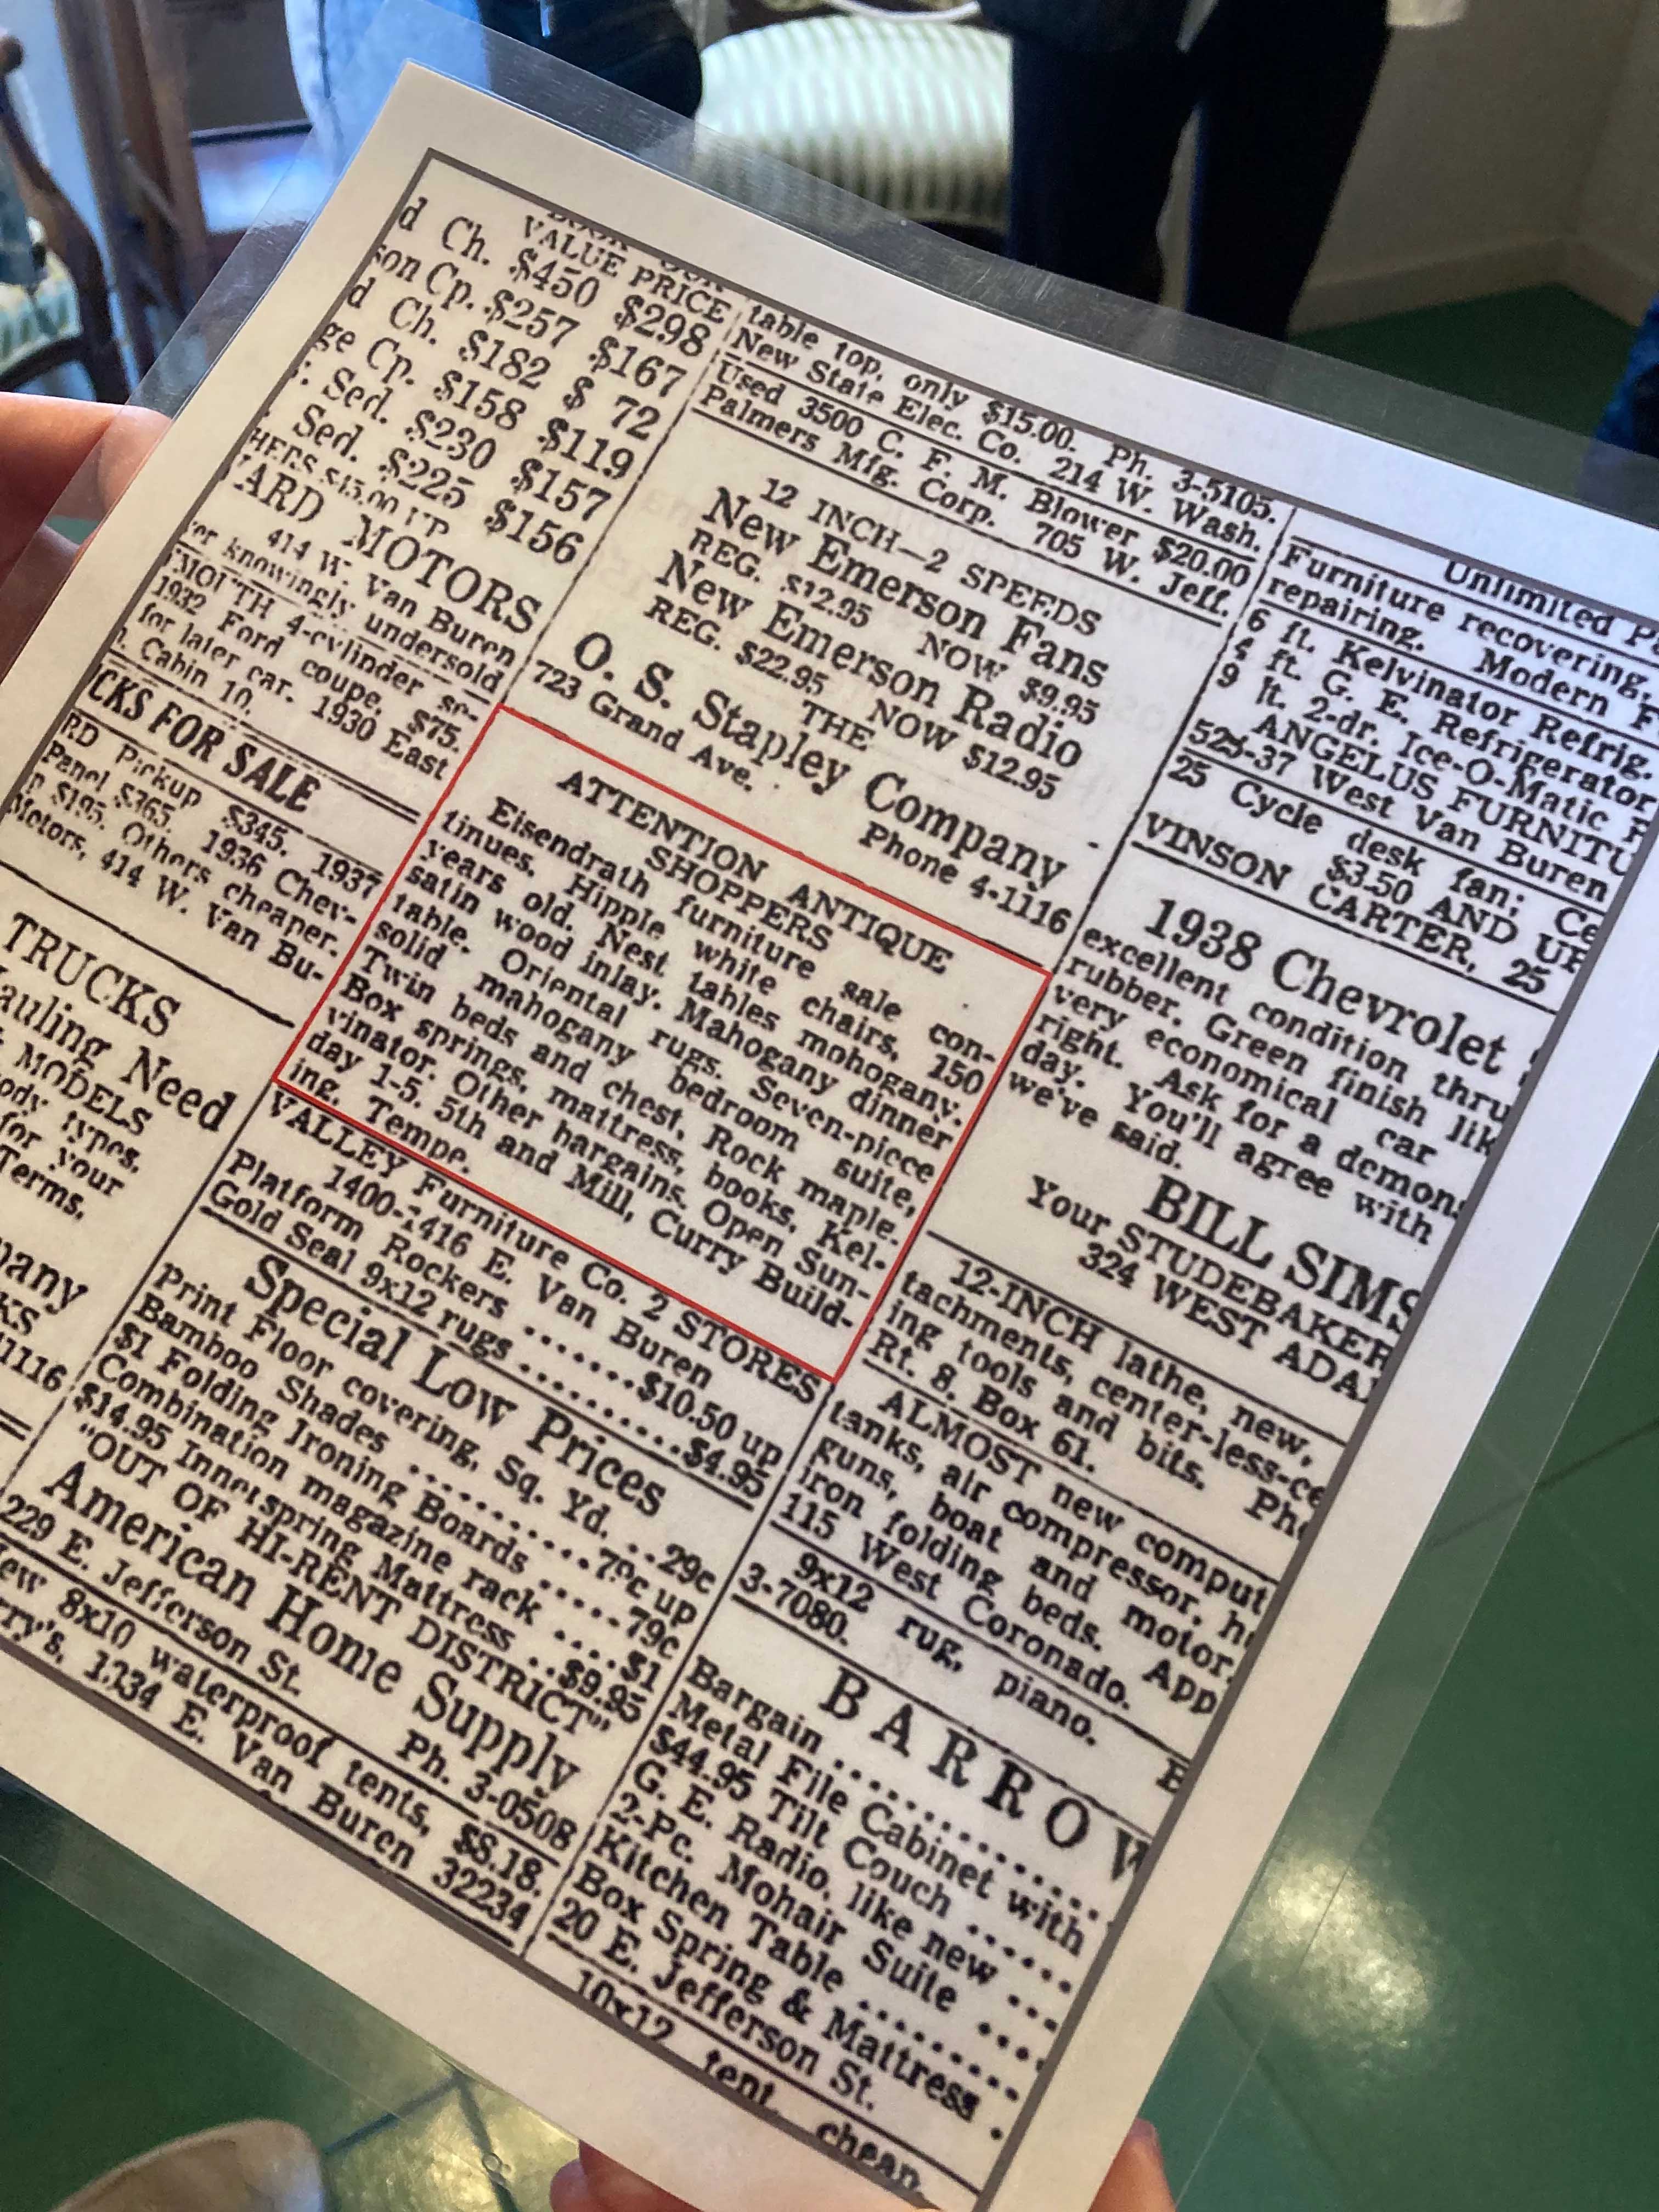 VALUE PRICE
d Ch. $450 $298
son Cp. $257 $167
d Ch. $182 $ 72
ge Cp. $158 $119
Sed. $230 $157
Sed. $225 $156
HERS $45.00 UP
ARD MOTORS
414 W. Van Buren
er knowingly undersold
MOUTH 4-cylinder se-
1932 Ford coupe, $75.
for later car. 1930 East
Cabin 10.
CKS FOR SALE
RD Pickup $345. 1937
Panel $365. 1936 Chev-
$195. Others cheaper.
Motors, 414 W. Van Bu-
TRUCKS
auling Need
MODELS
ody types.
for your
Terms.
pany
KS
1116
table top, only $15.00. Ph. 3-5105.
New State Elec. Co. 214 W. Wash.
Used 3500 C. F. M. Blower $20.00
Palmers Mfg. Corp. 705 W. Jeff.
12 INCH—2 SPEEDS
New Emerson Fans
REG. $12.95 NOW $9.95
New Emerson Radio
REG. $22.95 NOW $12.95
THE
O. S. Stapley Company
723 Grand Ave. Phone 4-1116
ATTENTION ANTIQUE
SHOPPERS
Eisendrath furniture sale con-
tinues. Hipple white chairs, 150
years old. Nest tables mohogany.
satin wood inlay. Mahogany dinner
table. Oriental rugs. Seven-piece
solid mahogany bedroom suite,
Twin beds and chest, Rock maple.
Box springs, mattress, books, Kel-
vinator. Other bargains. Open Sun-
day 1-5. 5th and Mill, Curry Build-
ing, Tempe.
VALLEY Furniture Co. 2 STORES
1400-1416 E. Van Buren
Platform Rockers .......$10.50 up
Gold Seal 9x12 rugs ..........$4.95
Special Low Prices
Print Floor covering, Sq. Yd. ..29c
Bamboo Shades ..........79c up
$1 Folding Ironing Boards .....79c
Combination magazine rack ....$1
$14.95 Innerspring Mattress ..$9.95
"OUT OF HI-RENT DISTRICT"
American Home Supply
229 E. Jefferson St. Ph. 3-0508
ew 8x10 waterproof tents, $8.18.
rry's, 1334 E. Van Buren 32234
Unlimited
Furniture recovering,
repairing. Modern F
6 ft. Kelvinator Refrig.
4 ft. G. E. Refrigerator
9 ft. 2-dr. Ice-O-Matic
ANGELUS FURNITU
525-37 West Van Buren
25 Cycle desk fan; Ce
$3.50 AND UP
VINSON CARTER, 25
1938 Chevrolet
excellent condition thru
rubber. Green finish lik
very economical car
right. Ask for a demons
day. You'll agree with
we've said.
BILL SIMS
Your STUDEBAKER
324 WEST ADA
12-INCH lathe, new,
tachments, center-less-ce
ing tools and bits. Pho
Rt. 8, Box 61.
ALMOST new comput
tanks, air compressor, h
guns, boat and motor,
iron folding beds. App
115 West Coronado.
9x12 rug, piano.
3-7080.
BARROW
Bargain ..............
Metal File Cabinet with
$44.95 Tilt Couch ......
G. E. Radio, like new ...
2-Pc. Mohair Suite ....
Kitchen Table ........
Box Spring & Mattress .
20 E. Jefferson St.
10x12 tent, cheap